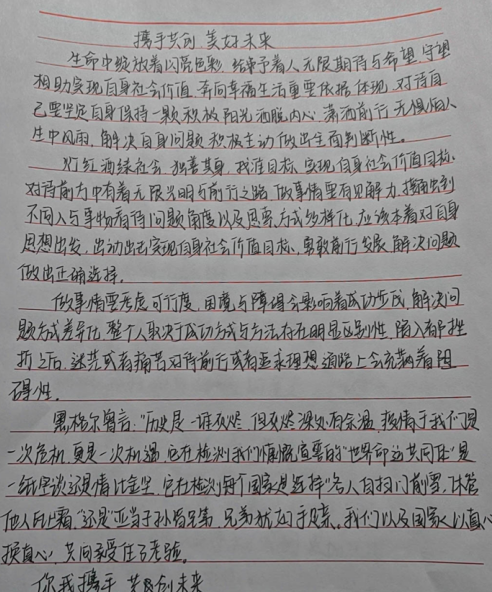 携手共创 美好未来
生命中绽放着闪亮色彩 给予着人无限期待与希望 守望
相助实现自身社会价值 奔向幸福生活重要依据体现 对待自
己要坚定自身保持一颗积极阳光洒脱内心 潇洒前行 无惧怕人
生中风雨 解决自身问题 积极主动做出全面判断性。
灯红酒绿社会 独善其身 找准目标 实现自身社会价值目标.
对待前方中有着无限光明与前行之路 做事情要有见解力 接触出到
不同人与事物看待问题角度以及思考方式多样化 应该本着对自身
思想出发 出动出击实现自身社会价值目标 勇敢前行发展 解决问题
做出正确选择.
做事情要考虑可行度 困境与障碍会影响着成功步伐 解决问
题方式差异化 整个人取决于成功方式与方法存在明显区别性 陷入
折之后 迷茫或者痛苦对待前行或者追求理想道路上会充满着阻
碍性.
黑格尔曾言:"历史是一堆灰烬 但灰烬深处有余温 疫情于我们是
一次危机 更是一次机遇 它在检测我们情感宣言的"世界命运共同体"是
一纸空谈还是情比金坚 它在检测每个国家是选择"各人自扫门前雪,休管
他人瓦上霜"还是"亚当子孙皆兄弟 兄弟犹如手足亲。我们以及国家以真心
换真心 共同承受住了考验。
你我携手 共创未来